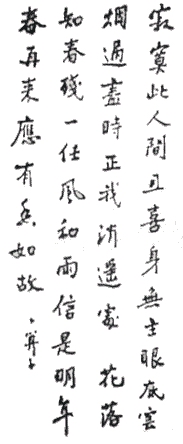 寂寞此人間且喜身無主眼底雲
烟過盡時正我逍遥處 花落
知春殘一任風和雨信是明年
春再來應有香如故 、算子